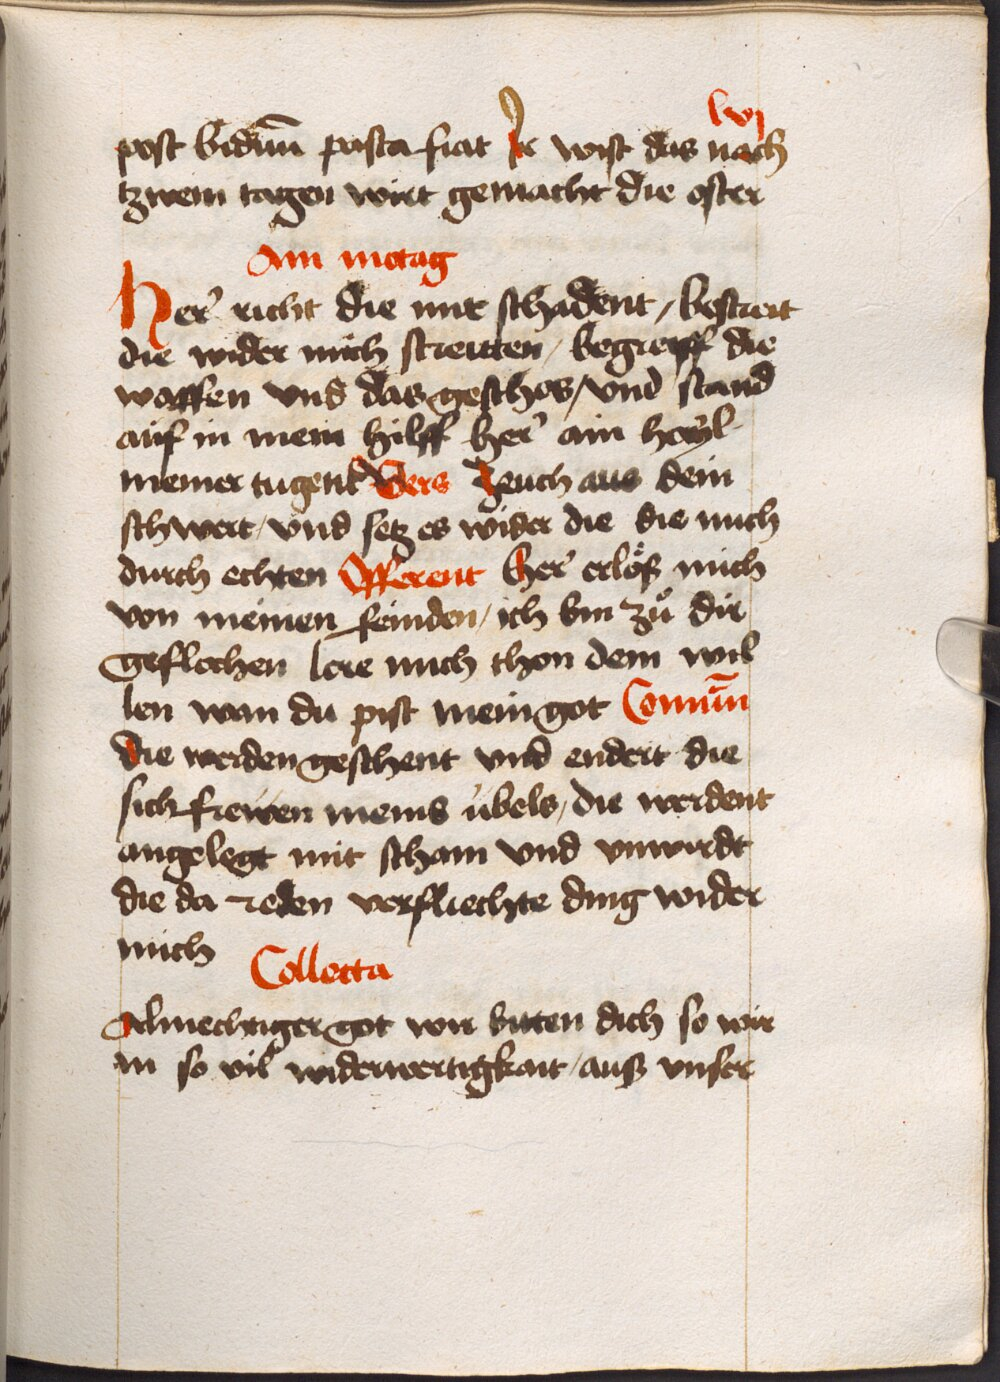 lvj
post biduū pasca fiat Ir wist das nach
tzwein tagen wirt gemacht die oster
Am motag
Her richt die mir schadent / bestreit
die wider mich streitten / begreyff die
waffen vnd das geschos / vnd stand
auf in mein hilff her ain hayl
meiner tugent Vers Zeuch aus dein
schwert / vnd setz es wider die die mich
durch echten Offerent Her erlöß mich
von meinen feinden / ich bin zů dir
geflochen lere mich thon dein wil
len wan du pist mein got Comūn
die werden geschent vnd endert die
sich frewen meins übels / die werdent
angelegt mit scham vnd vnwirdt
die da reden verfliechte ding wider
mich
Collecta
Almechtiger got wir bitten dich so wir
in so vil widerwertigkait / auß vnser